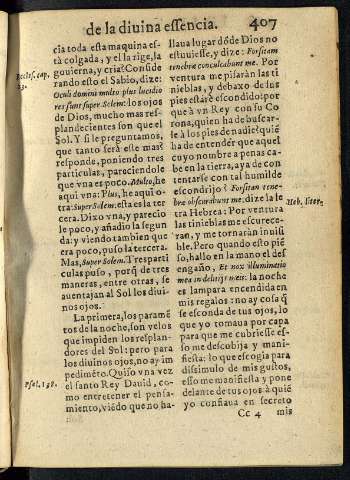 de la diuina essencia. 407
cia toda esta maquina es-
tà colgada; y el la rige, la
gouierna, y cria? Conside
rando esto el Sabio, dize:
Oculi domini multo plus lucidio
res sunt super Solem: los ojos
de Dios, mucho mas res-
plandecientes son que el
Sol. Y si le preguntamos,
que tanto serà este mas?
responde, poniendo tres
particulas, pareciendole
que vna es poco. Multo, he
aqui vna: Plus, he aqui o-
tra: Super Solem: esta es la ter
cera. Dixo vna, y parecio
le poco, y añadio la segun
da: y viendo tambien que
era poco, puso la tercera.
Mas, super Solem. Tres parti
culas puso, porq̃ de tres
maneras, entre otras, se
auentajan al Sol los diui
nos ojos.
La primera, los paramẽ
tos de la noche, son velos
que impiden los resplan-
dores del Sol: pero para
los diuinos ojos, no ay im
pedimẽto. Quiso vna vez
el santo Rey Dauid, co-
mo entretener el pensa-
miento, viẽdo que no ha-
Eccles. cap.
23.
Psal. 138.
llaua lugar dõde Dios no
estuuiesse, y dize: Forsitam
tenebræ conculcabunt me. Por
ventura me pisaràn las ti
nieblas, y debaxo de sus
pies estarè escondido: por
que à vn Rey con su Co
rona, quien ha de buscar-
le à los pies de nadie? quiẽ
ha de entendèr que aquel
cuyo nombre a penas ca-
be en la tierra, aya de con
tentarse con tal humilde
escondrijo? Forsitan tene-
bræ obscurabunt me. dize la le
tra Hebrea: Por ventura
las tinieblas me escurece-
ran, y me tornaràn inuisi
ble. Pero quando esto piẽ
so, hallo en la mano el des
engaño, Et nox illuminatio
mea in delicijs meis: la noche
es lampara encendida en
mis regalos: no ay cosa q̃
se esconda de tus ojos, lo
que yo tomaua por capa
para que me cubriesse es-
so me descubrija y mani-
fiesta: lo que escogia para
dissimulo de mis gustos,
esso me manifiesta y pone
delante de tus ojos: à quiẽ
yo confiaua en secreto
Heb. litera.
Cc 4 mis